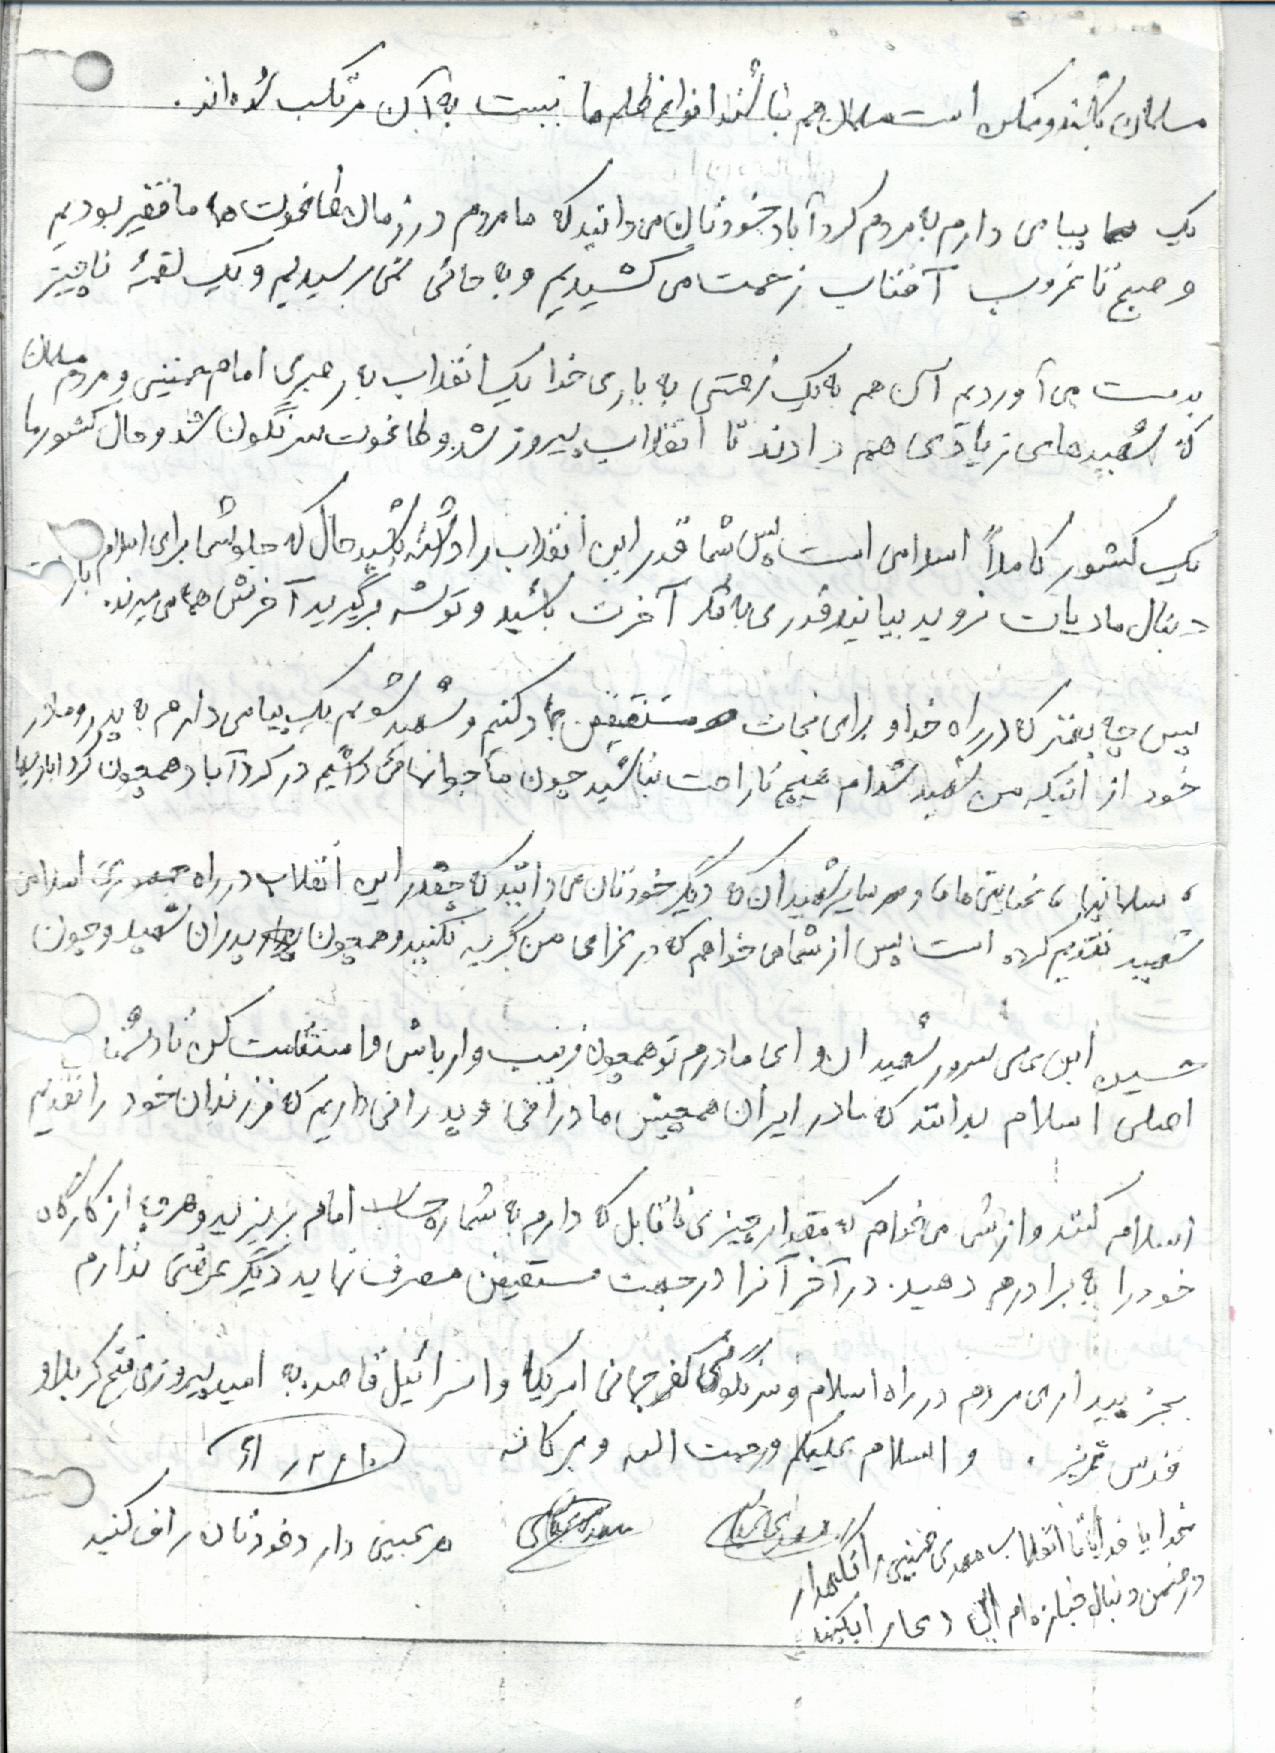 مسلمان نباشند و ممکن است مسلمان هم نباشند انواع ظلم ها نسبت به آن مرتکب شده اند.
یک پیامی دارم به مردم کردآباد خودتان می دانید که ما مردم در زمان طاغوت ما فقیر بودیم
و صبح تا غروب آفتاب زحمت می کشیدیم و به جائی نمی رسیدیم و یک لقمهٔ ناچیز
بدست می آوردیم آن هم به یک زحمتی به یاری خدا یک انقلاب به رهبری امام خمینی و مردم مسلمان
که شهیدهای زیادی هم دادند تا انقلاب پیروز شد و طاغوت سرنگون شد و حال کشور ما
یک کشور کاملاً اسلامی است پس شما قدر این انقلاب را داشته باشید حال که جلو شما برای اسلام باز است
دنبال مادیات نروید بیائید قدری به فکر آخرت باشید و توشه برگیرید آخرش همه می میرند.
پس چه بهتر که در راه خدا و برای نجات مستضعفین جهاد کنیم و شهید شویم یک پیامی دارم به پدر و مادر
خود از اینکه من شهید شده ام هیچ ناراحت نباشید چون ما جوانهائی داشتیم در کردآباد همچون کردآبادیها
، سلمانیها، عنایتی ها و سایر شهیدان که دیگر خودتان می دانید که چقدر این انقلاب در راه جمهوری اسلامی
شهید تقدیم کرده است پس از شما می خواهم که در عزای من گریه نکنید و همچون پدران شهید و چون
حسین ابن علی سرور شهیدان و ای مادرم تو همچون زینب وار باش و استقامت کن تا دشمنان
اصلی اسلام بدانند که ما در ایران همچنین مادرانی و پدرانی داریم که فرزندان خود را تقدیم
اسلام کنند و از شما می خواهم که مقدار چیزی ناقابل که دارم به شماره حساب امام بریزید و هر چه از کارگاه
خود را به برادرم دهید. در آخر آنرا در جهت مستضعفین مصرف نماید دیگر عرضی ندارم
بجز بیداری مردم در راه اسلام و سرنگونی کفر جهانی امریکا و اسرائیل غاصب به امید پیروزی فتح کربلا و
قدس عزیز. و السلام علیکم و رحمت الله و برکاته
خدایا خدایا تا انقلاب مهدی خمینی را نگهدار
هر عیبی دارد خودتان صاف کنید
در ضمن دنبال جنازه ام این دعا را بکنید